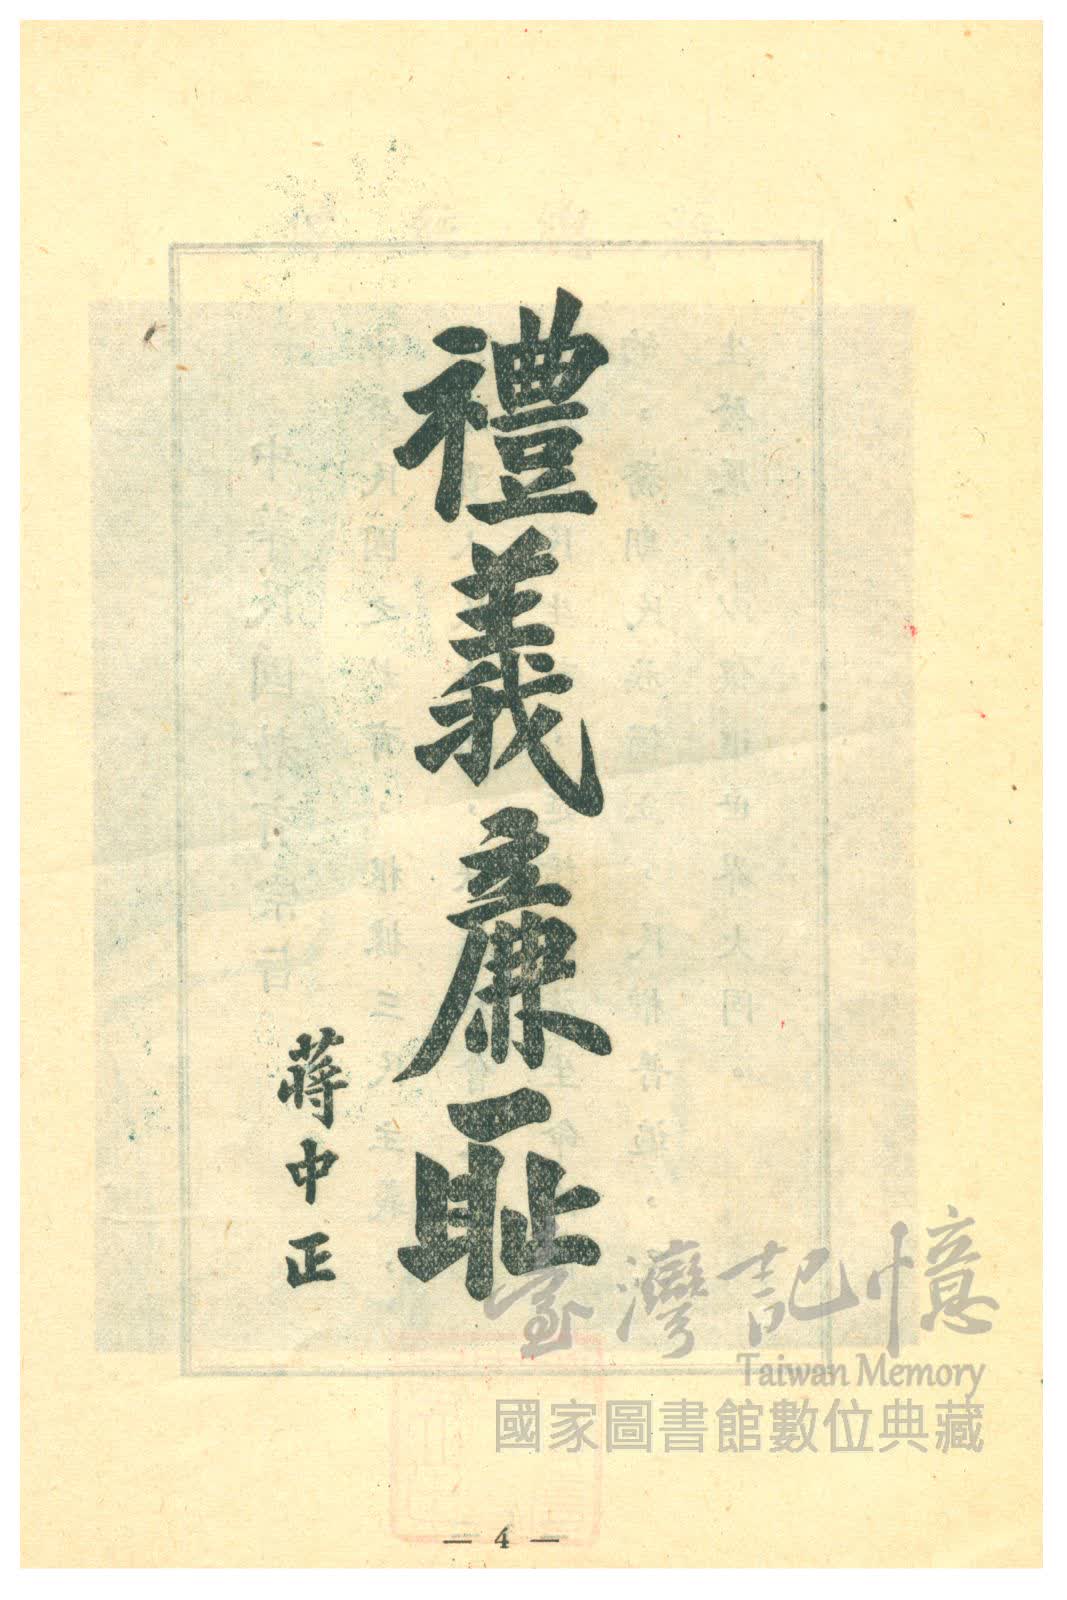 禮義廉恥
蔣中正
臺灣記憶
Taiwan Memory
國家圖書館數位典藏
— 4 —